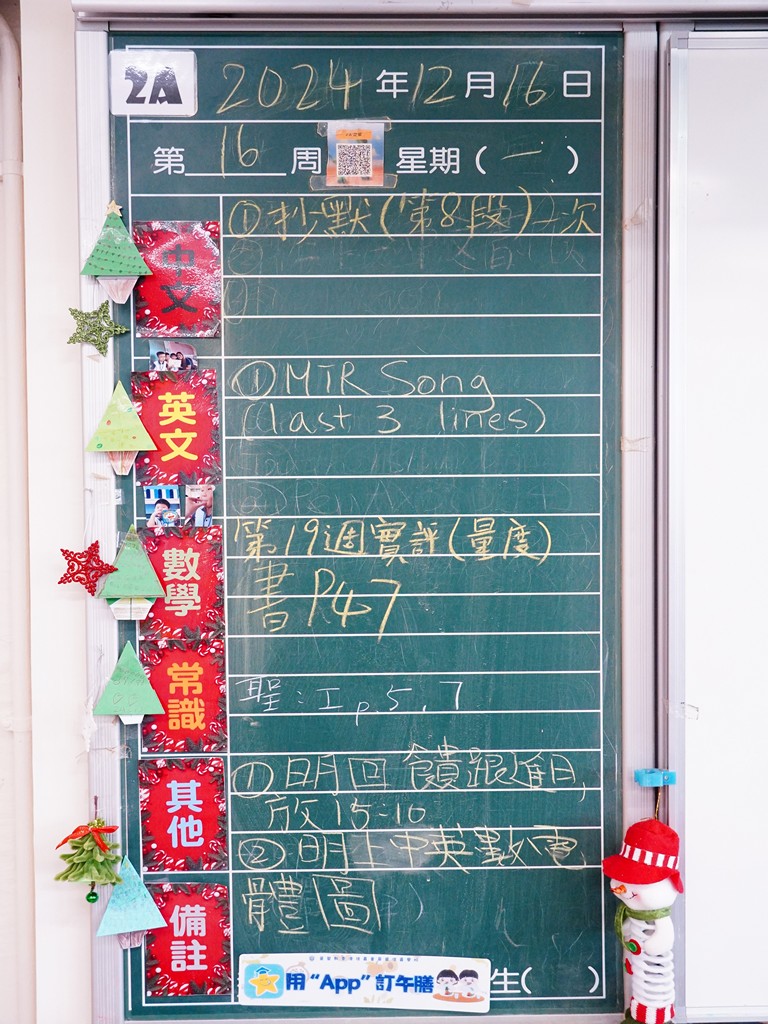 2A 2024 年 12 月 16 日
第 16 周 星期 ( 一 )
中文
① 抄默(第8段)一次
英文
① MTR Song
(last 3 lines)
數學
第19週實評(量度)
書P47
常識
聖:工p.5,7
其他
①明回饋跟進日,
放15:10
②明上中英數電
備註
體圖
用“App”訂午膳
生( )